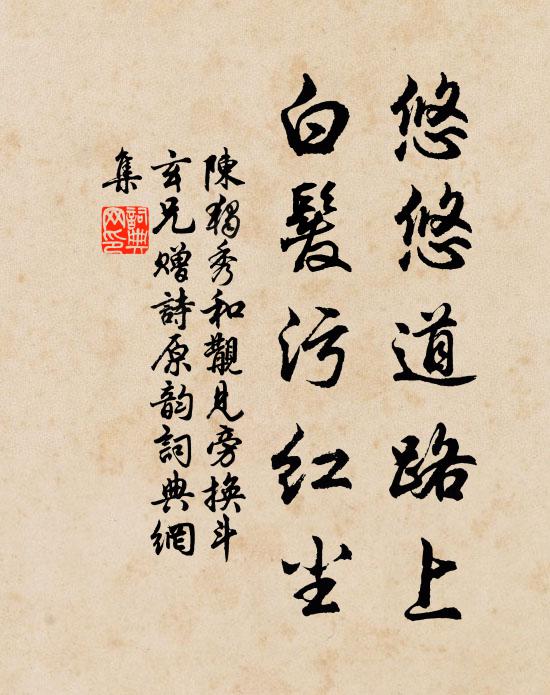 悠悠道路上
白髮污红尘
陳獨秀和觀見旁換斗
玄兄贈詩原韵詞典網
集
詞典
网印